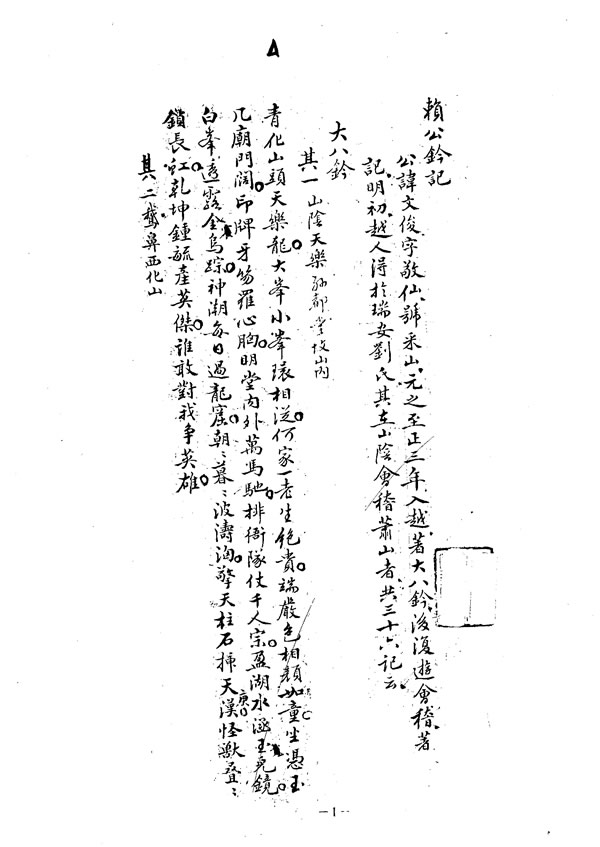 A
賴公鈐記
公諱文俊字敬仙號釆山元之至正三年入越著大八鈐後復遊會稽著
記明初越人淂扵瑞安劉氏其在山陰會稽蕭山者共三十六記云
大八鈐
其一 山陰天樂 都堂坟山內
青化山頭天樂龍大峯小峯環相從何家一老生絶貴端嚴色相顏如童坐憑玉
几廟門闊印牌牙笏羅心胸明堂內外萬馬馳排衙隊仗千人宗盈湖水涵玉兎鏡
白峯透露金烏踪神潮每日過龍窟朝〻暮〻波濤洶擎天柱石掃天漢怪獸叠〻
鎖長虹乾坤鍾毓產英傑誰敢對我爭英雄
其二 鵝鼻西化山
—1—